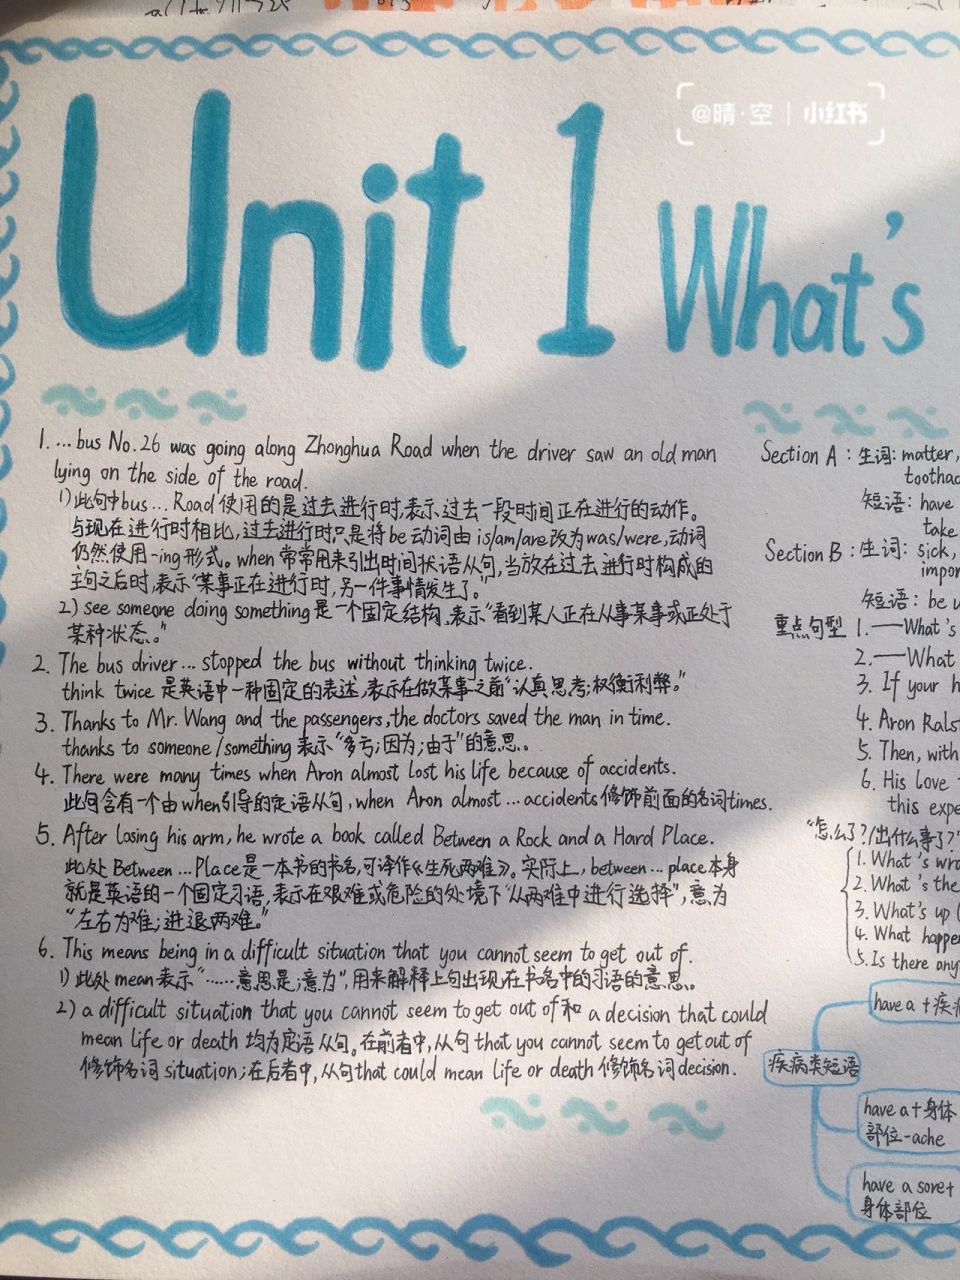 @晴·空 | 小红书
Unit 1 What's
1. ...bus No.26 was going along Zhonghua Road when the driver saw an old man
lying on the side of the road.
1)此句中bus...Road使用的是过去进行时,表示过去一段时间正在进行的动作。
与现在进行时相比,过去进行时只是将be动词由is/am/are改为was/were,动词
仍然使用-ing形式。when常常用来引出时间状语从句,当放在过去进行时构成的
主句之后时,表示“某事正在进行时,另一件事情发生了。”
2) see someone doing something是一个固定结构,表示“看到某人正在从事某事或正处于
某种状态。”
2. The bus driver... stopped the bus without thinking twice.
think twice 是英语中一种固定的表述,表示在做某事之前“认真思考;权衡利弊。”
3. Thanks to Mr. Wang and the passengers, the doctors saved the man in time.
thanks to someone/something 表示“多亏;因为;由于”的意思。
4. There were many times when Aron almost lost his life because of accidents.
此句含有一个由when引导的定语从句,when Aron almost...accidents修饰前面的名词times.
5. After losing his arm, he wrote a book called Between a Rock and a Hard Place.
此处Between...Place是一本书的书名,可译作《生死两难》。实际上,between...place本身
就是英语的一个固定习语,表示在艰难或危险的处境下“从两难中进行选择”,意为
“左右为难;进退两难。”
6. This means being in a difficult situation that you cannot seem to get out of.
1)此处mean表示“......意思是;意为”,用来解释上句出现在书名中的习语的意思。
2) a difficult situation that you cannot seem to get out of和 a decision that could
mean life or death 均为定语从句。在前者中,从句that you cannot seem to get out of
修饰名词situation;在后者中,从句that could mean life or death修饰名词decision.
Section A：生词: matter,
短语: have
take
Section B：生词: sick,
短语: be
重点句型 1.——What's
2.——What
3. If your
4. Aron
5. Then, with
6. His love
this
“怎么了?/出什么事了?”
1. What's
2. What's the
3. What's up
4. What
5. Is there
have a + 疾
疾病类短语
have a + 身体
部位-ache
have a sore +
身体部位